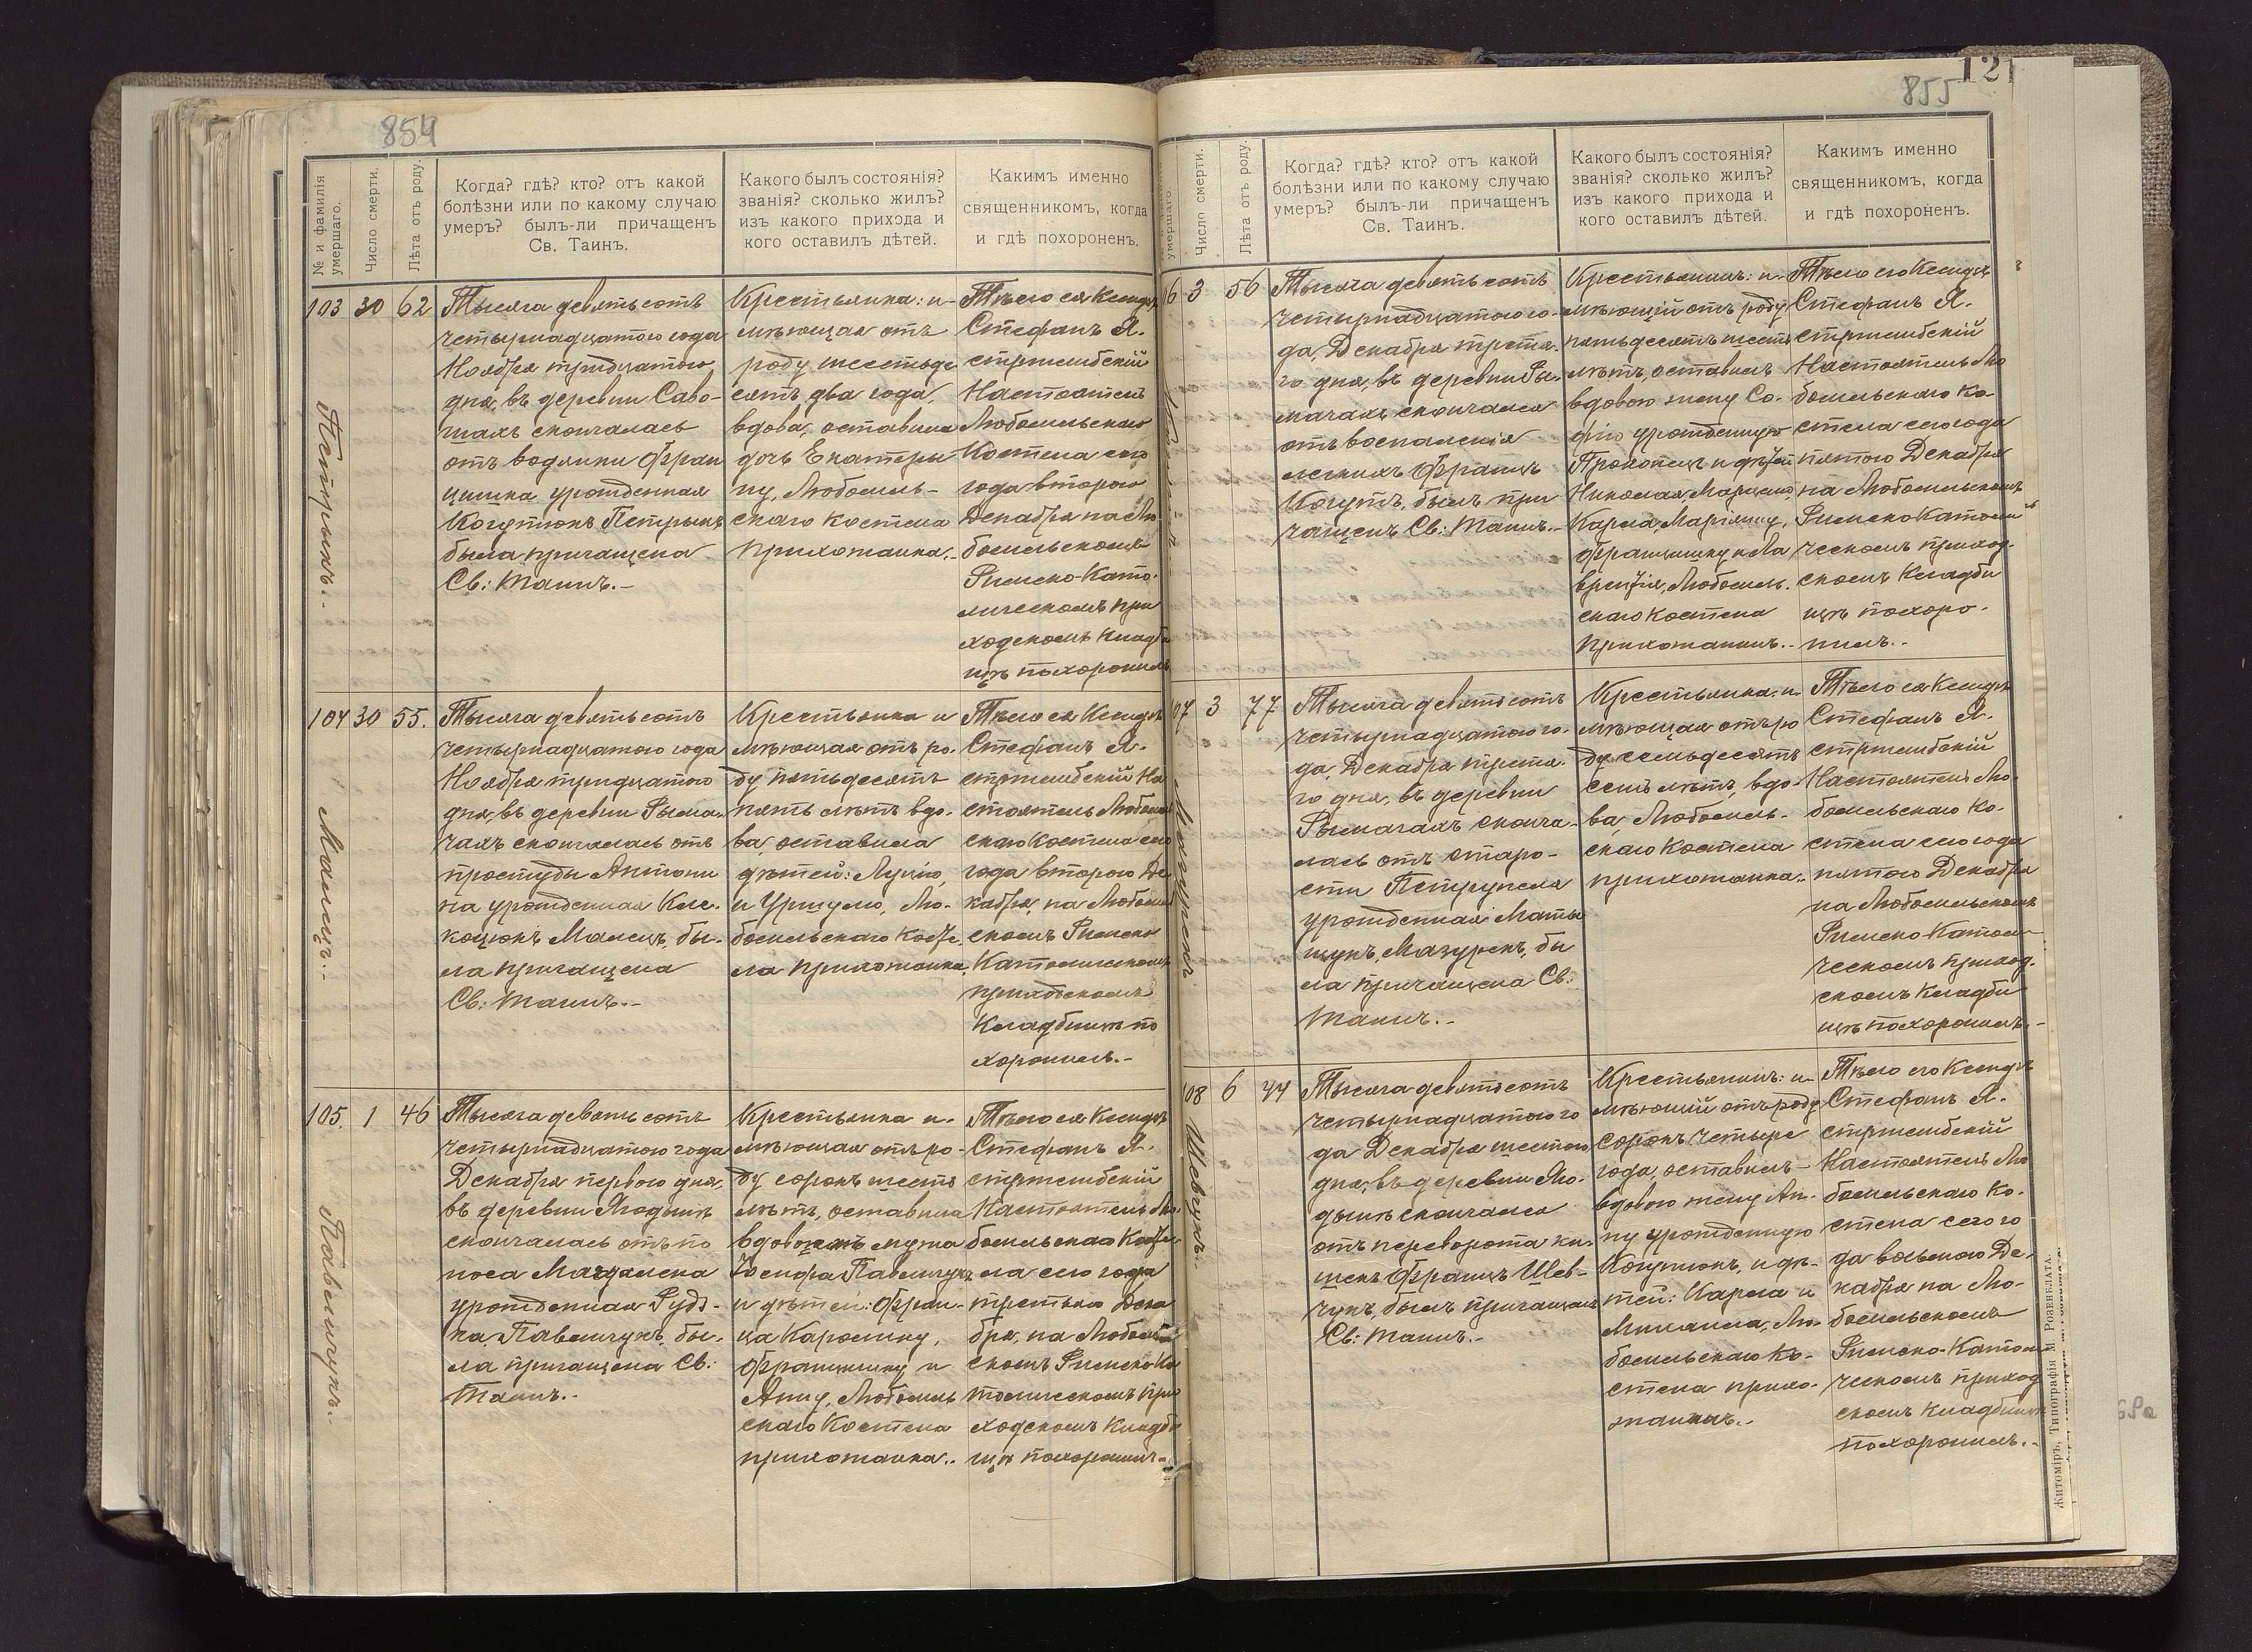 854
№ и фамилія
умершаго.
Число смерти.
Лѣта отъ роду.
Когда? гдѣ? кто? отъ какой
болѣзни или по какому случаю
умеръ? былъ-ли причащенъ
Св. Таинъ.
Какого былъ состоянія?
званія? сколько жилъ?
изъ какого прихода и
кого оставилъ дѣтей.
Какимъ именно
священникомъ, когда
и гдѣ похороненъ.
103 30 62
Петрыкъ.
Тысяча девятьсотъ
четырнадцатого года
Ноября тридцатого
дня, въ деревни Саво-
шахъ скончалась
отъ водянки Фран
цишка урожденная
Когутюкъ Петрыкъ
была причащена
Св: Таинъ.-
Крестьянка: и-
мѣющая отъ
роду шестьде
сятъ два года,
вдова, оставила
дочь Екатери
ну, Любомль-
скаго костела
прихожанка.-
Тѣло ея Ксендзъ
Стефанъ Я-
стржембскій
Настоятель
Любомльскаго
Костела сего
года второго
Декабря на Лю-
бомльскомъ
Римско-Като-
лическомъ при
ходскомъ кладби
щѣ похоронилъ
104 30 55.
Малецъ.-
Тысяча девятьсотъ
четырнадцатого года
Ноября тридцатого
дня, въ деревни Рыма-
чахъ скончалась отъ
простуды Антони
на урожденная Кле-
коцюкъ Малецъ, бы-
ла причащена
Св: Таинъ.-
Крестьянка и
мѣющая отъ ро-
ду пятьдесятъ
пять лѣтъ вдо-
ва, оставила
дѣтей: Луцію,
и Уршулю, Лю-
бомльскаго Косте-
ла прихожанка.
Тѣло ея Ксендзъ
Стефанъ Я-
стржембскій На
стоятель Любомль
скаго Костела сего
года второго Де
кабря, на Любомль
скомъ Римско
Католическомъ
приходскомъ
Кладбищѣ по
хоронилъ.-
105. 1 46
Павлищукъ.
Тысяча девятьсотъ
четырнадцатого года
Декабря первого дня,
въ деревни Ягодинѣ
скончалась отъ по
носа Магдалена
урожденная Рудз-
ка, Павлищукъ, бы-
ла причащена Св:
Таинъ.-
Крестьянка и-
мѣющая отъ ро-
ду сорокъ шесть
лѣтъ, оставила
вдовомъ мужа
Іосифа Павлищука
и дѣтей: Фран-
ца Каролину,
Францишку и
Анну, Любомль
скаго Костела
прихожанка.-
Тѣло ея Ксендзъ
Стефанъ Я-
стржембскій
Настоятель Лю-
бомльскаго Косте
ла сего года
третьяго Дека
бря, на Любомль
скомъ Римско Ка
толическомъ при
ходскомъ Кладби
щѣ похоронилъ.
121
855
умершаго.
Число смерти.
Лѣта отъ роду.
Когда? гдѣ? кто? отъ какой
болѣзни или по какому случаю
умеръ? былъ-ли причащенъ
Св. Таинъ.
Какого былъ состоянія?
званія? сколько жилъ?
изъ какого прихода и
кого оставилъ дѣтей.
Какимъ именно
священникомъ, когда
и гдѣ похороненъ.
06 3 56
Тысяча девятьсотъ
четырнадцатого го-
да, Декабря третья-
го дня, въ деревни Ры-
мачахъ скончался
отъ воспаленія
легкихъ Францъ
Когутъ, былъ при
чащенъ Св: Таинъ.-
Крестьянинъ: и-
мѣющій отъ роду
пятьдесятъ шесть
лѣтъ, оставилъ
вдовою жену Со-
фію урожденную
и дѣтей
Николая,
Карла, Маріанну,
Францишку и Ла
врентія, Любомль-
скаго костела
прихожанинъ.-
Тѣло его Ксендзъ
Стефанъ Я-
стржембскій
Настоятель Лю
бомльскаго Ко-
стела сего года
пятого Декабря
на Любомльскомъ
Римско Католи
ческомъ приход-
скомъ Кладби
щѣ похоро-
нилъ.-
07 3 77
Мазурекъ.
Тысяча девятьсотъ
четырнадцатого го-
да, Декабря третья-
го дня, въ деревни
Рымачахъ сконча-
лась отъ старо-
сти Петрунеля
урожденная Маты
щукъ, Мазурекъ, бы
ла причащена Св:
Таинъ.-
Крестьянка: и-
мѣющая отъ ро
ду семьдесятъ
семь лѣтъ, вдо-
ва, Любомль-
скаго Костела
прихожанка.-
Тѣло ея Ксендзъ
Стефанъ Я-
стржембскій
Настоятель Лю-
бомльскаго Ко-
стела сего года
пятого Декабря
на Любомльскомъ
Римско Католи-
ческомъ приход-
скомъ Кладби
щѣ похоронилъ.-
08 6 44
Шевчукъ.
Тысяча девятьсотъ
четырнадцатого го
да Декабря шестого
дня, въ деревни Яго-
динѣ скончался
отъ переворота ки-
шекъ Францъ Шев-
чукъ, былъ причащенъ
Св: Таинъ.-
Крестьянинъ: и-
мѣющій отъ роду
сорокъ четыре
года, оставилъ
вдовою жену Ан-
ну урожденную
Когутюкъ, и дѣ-
тей: Карла и
Михаила, Лю-
бомльскаго Ко-
стела прихо-
жанинъ.-
Тѣло его Ксендзъ
Стефанъ Я-
стржембскій
Настоятель Лю
бомльскаго Ко-
стела сего го
да восьмого Де-
кабря на Лю-
бомльскомъ
Римско-Католи
ческомъ приход
скомъ кладбищѣ
похоронилъ.-
Житоміръ, Типографія М. Розенблата.